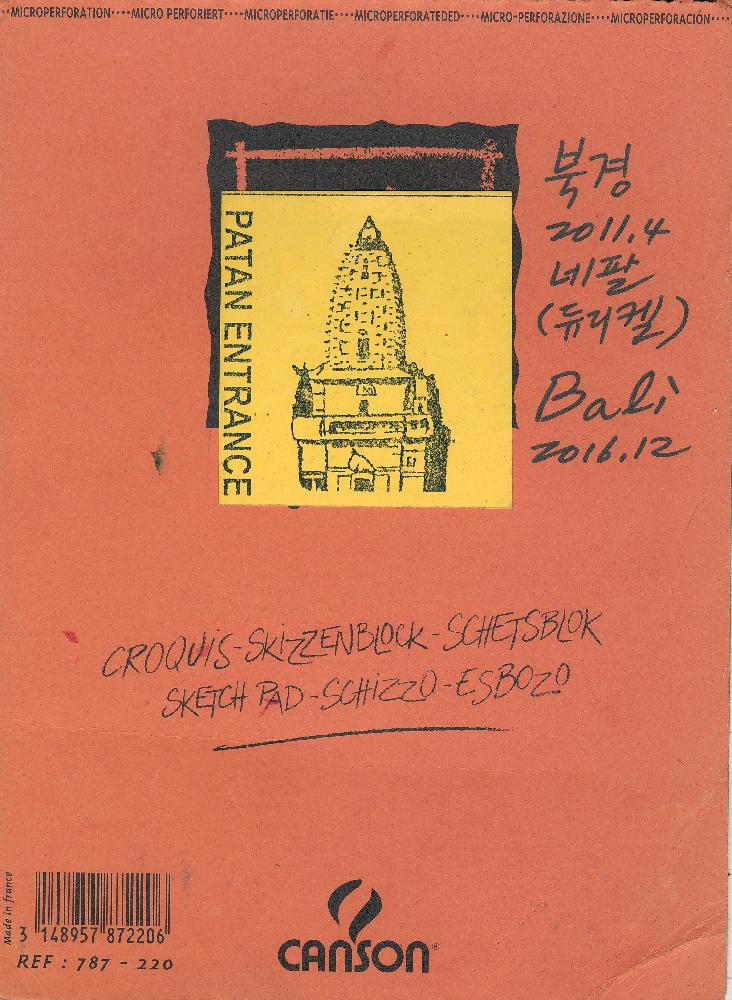 ··MICROPERFORATION····MICRO PERFORIERT····MICROPERFORATIE····MICROPERFORATEDED····MICRO-PERFORAZIONE····MICROPERFORACIÓN····
북경
2011.4
네팔
(듀리켈)
Bali
2016.12
PATAN ENTRANCE
CROQUIS-SKIZZENBLOCK-SCHETSBLOK
SKETCH PAD-SCHIZZO-ESBOZO
Made in france
3 148957 872206
REF : 787 - 220
CANSON®